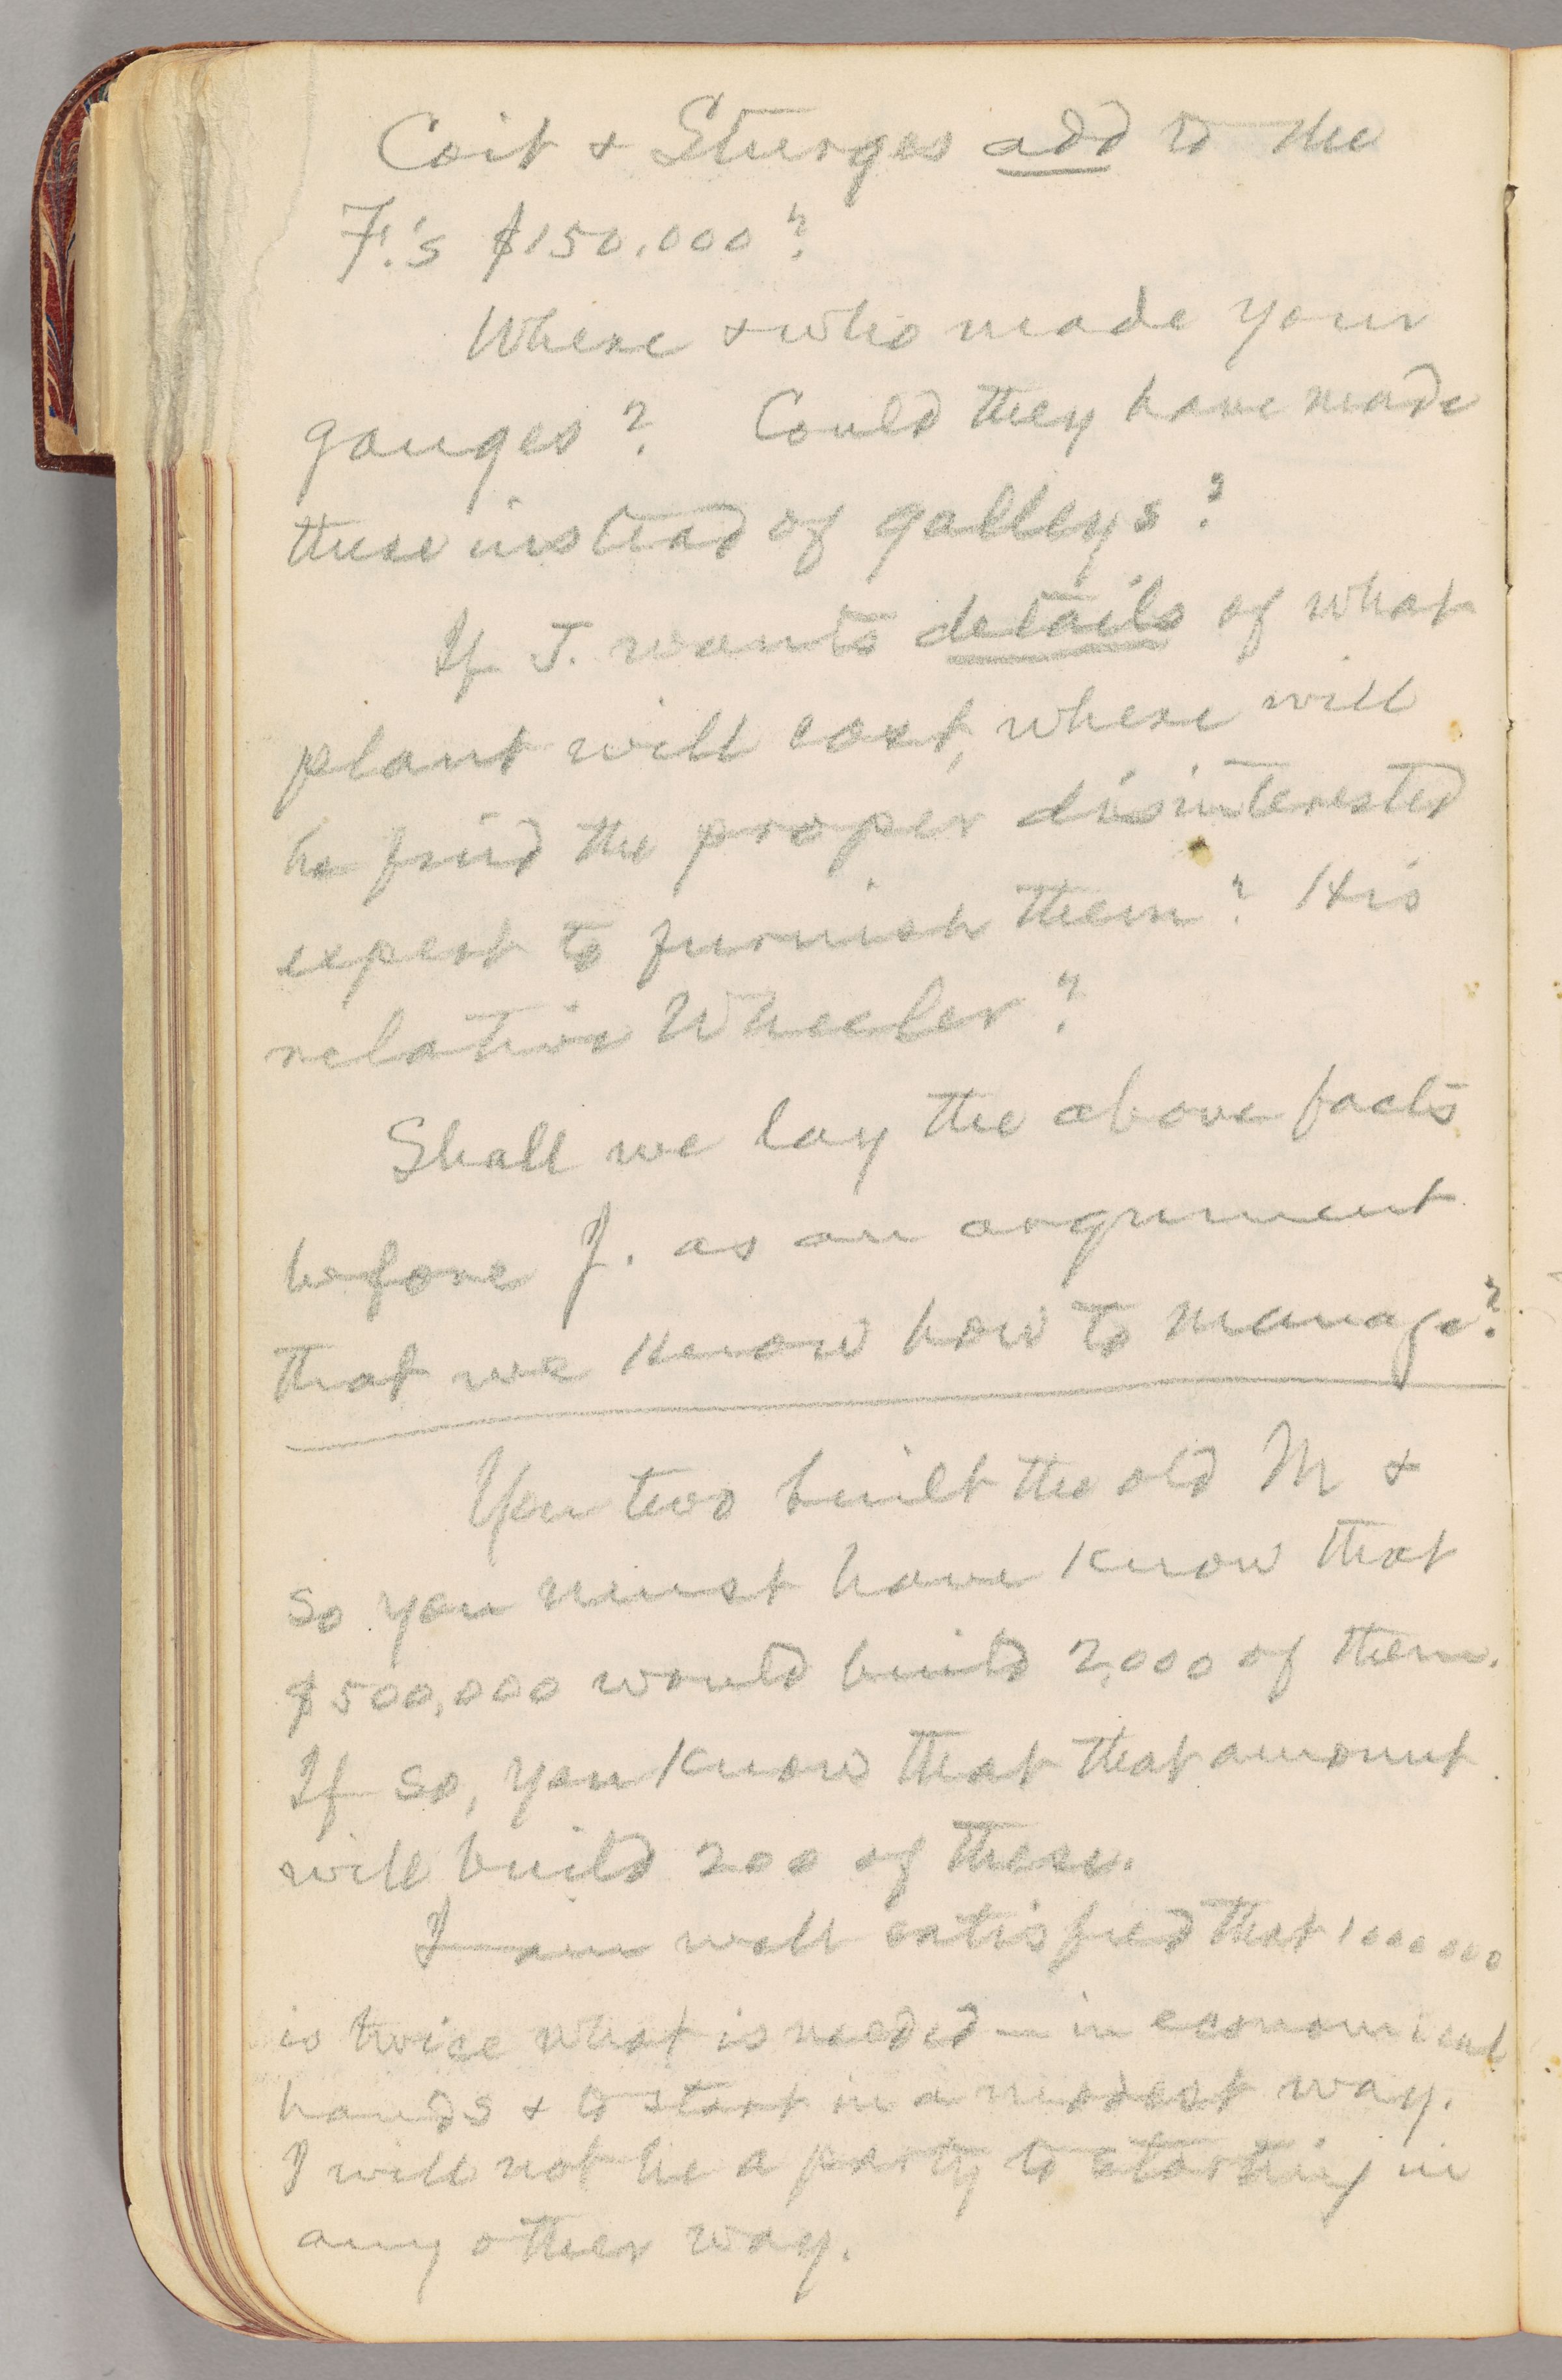 Coit & Sturges add to the
F.'s $150,000?
Where & who made your
gauges? Could they have made
these instead of galleys?
If J. wants details of what
plant will cost, where will
he find the proper disinterested
expert to furnish them? His
relative Wheeler?
Shall we lay the above facts
before J. as an argument
that we know how to manage?
You two built the old M &
so you must have know that
$500,000 would build 2,000 of them.
If so, you know that that amount
will build 200 of these.
I am well satisfied that 1000000
is twice what is needed — in economical
hands & to start in a modest way.
I will not be a party to starting in
any other way.